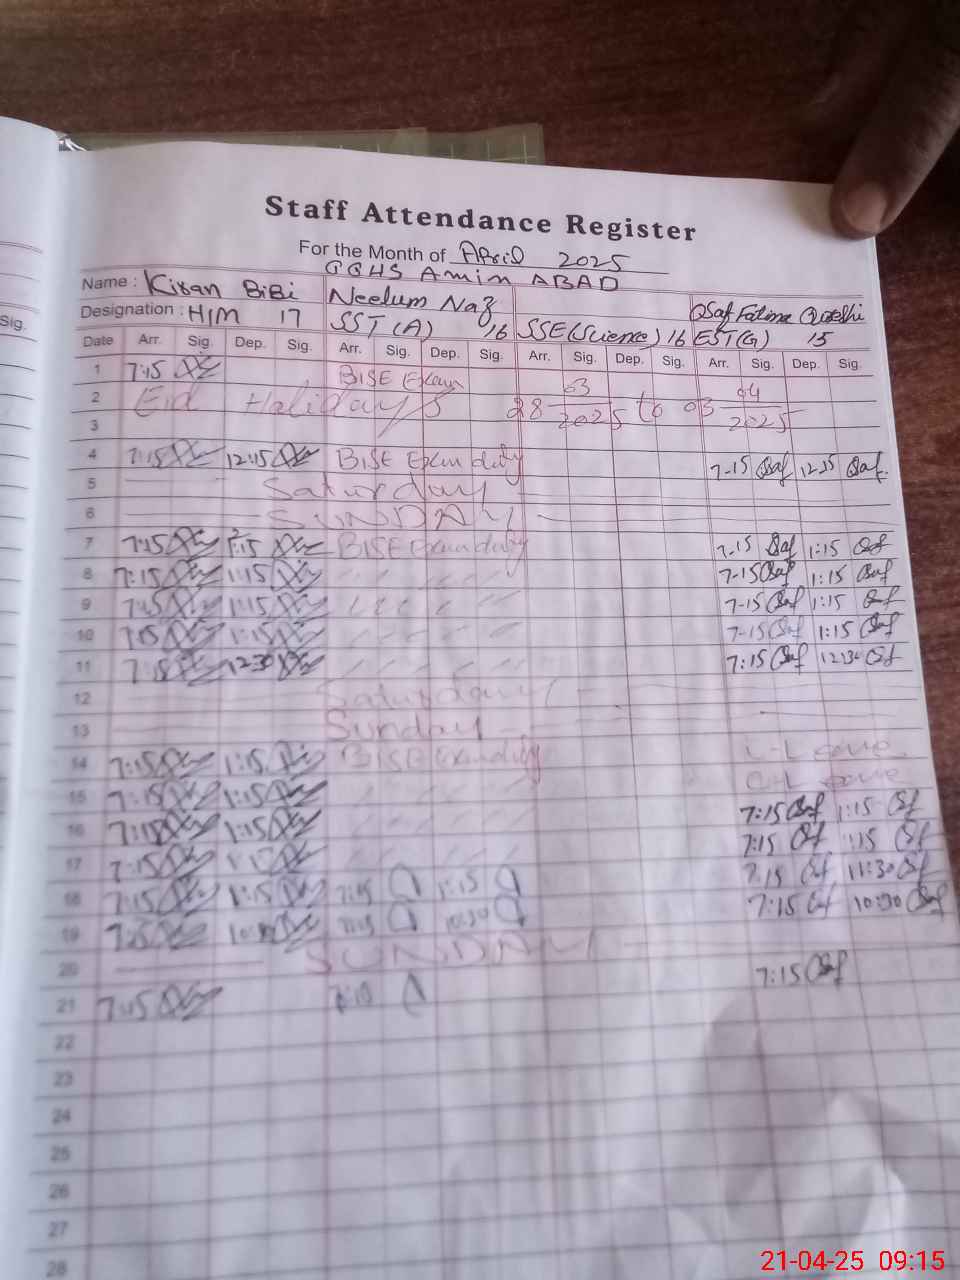 Staff Attendance Register
For the Month of April 2025
GGHS Amin ABAD
Name : Kiran BiBi Neelum Naz Fatima
Designation : H/M 17 SST (A) 16 SSE (Science) 16 EST (G) 15
Sig.
Date Arr. Sig. Dep. Sig. Arr. Sig. Dep. Sig. Arr. Sig. Dep. Sig. Arr. Sig. Dep. Sig.
1 7:15 BISE Exam
2 Eid Halidays 28 03/2025 to 03 04/2025
3
4 7:15 12:15 BISE Exam duty 7-15 12:15
5 Saturday
6 SUNDAY
7 7:15 1:15 BISE Exam duty 7-15 1:15
8 7:15 1:15 " " " " " 7-15 1:15
9 7:15 1:15 " " " " " 7-15 1:15
10 7:15 1:15 " " " " " 7-15 1:15
11 7:15 12:30 " " " " " 7:15 12:30
12 Saturday
13 Sunday
14 7:15 1:15 BISE Exam duty Leave
15 7:15 1:15 " " " " Leave
16 7:15 1:15 " " " " 7:15 1:15
17 7:15 1:15 " " " " 7:15 1:15
18 7:15 1:15 7:15 1:15 7:15 11:30
19 7:15 10:30 7:15 10:30 7:15 10:30
20 SUNDAY
21 7:15 7:10 7:15
22
23
24
25
26
27
28
21-04-25 09:15